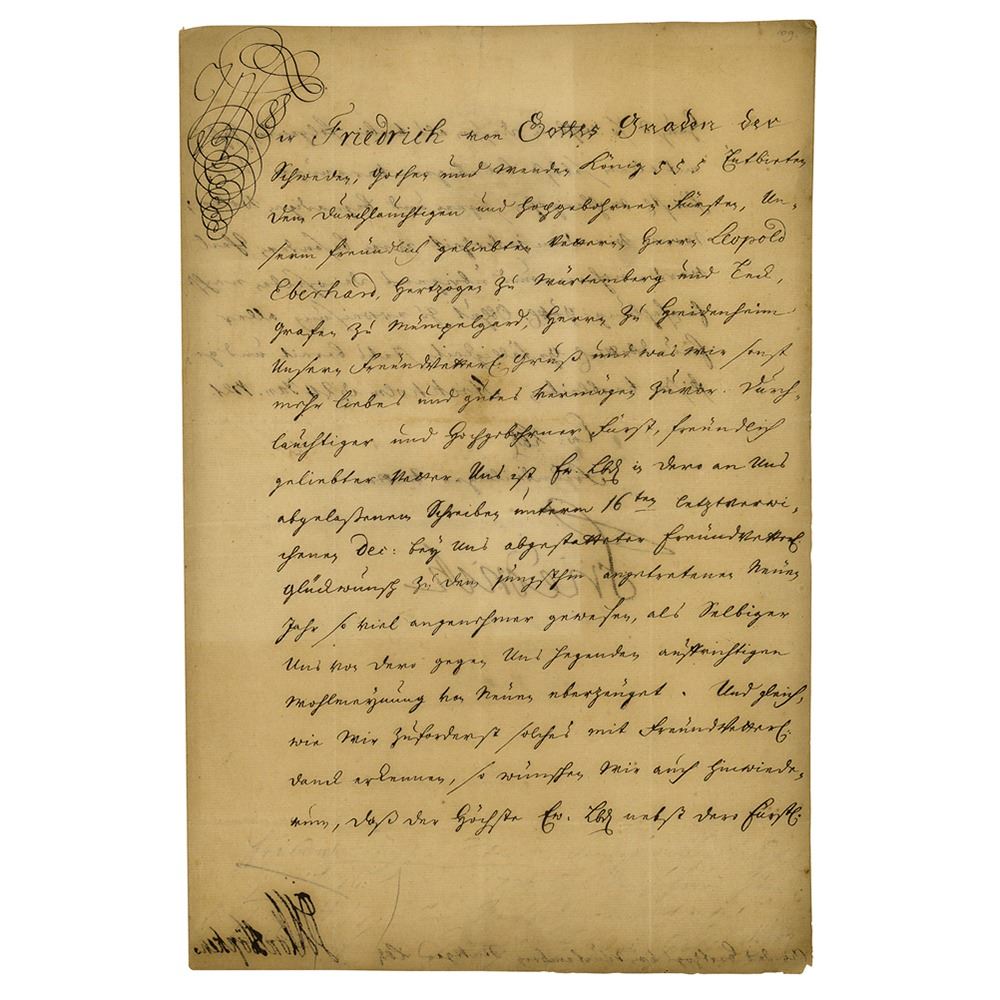 Wir Friedrich von Gottes Gnaden der
Schweden, Gothen und Wenden König Entbieten
dem durchlauchtigen und hochgebohrnen Fürsten, Un-
serm freundlich geliebten Vettern Herrn Leopold
Eberhard, Hertzogen zu Würtemberg und Teck,
Grafen zu Mümpelgard, Herrn zu Heidenheim
Unsern Freundvetterl. Gruß und was wir sonst
mehr liebes und gutes vermögen zuvor. Durch-
lauchtiger und Hochgebohrner Fürst, freundlich
geliebter Vetter Uns ist Ew. Lbd in dero an Uns
abgelaßenem Schreiben unterm 16ten letztverwi-
chenen Dec: bey Uns abgestatteter Freundvetterl.
Glückwunsch zu dem jüngsthin angetretenen Neuen
Jahr so viel angenehmer gewesen, als Selbiger
Uns von dero gegen Uns hegenden auffrichtigen
Wohlmeynung von Neuen überzeuget. Und gleich-
wie Wir zuforderst solches mit Freundvetterl.
danck erkennen, so wünschen Wir auch hinwiede-
rum, daß der Höchste Ew. Lbd nebst dero Fürstl.